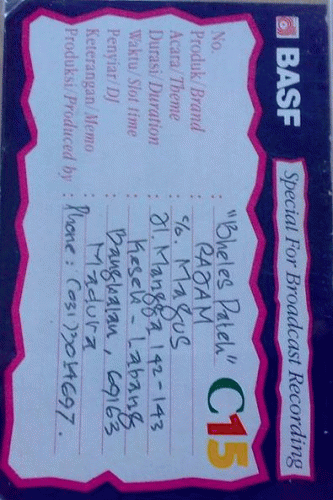 BASF
Special For Broadcast Recording
C15
No. :
Produk/Brand : "Bheles Pateh"
Acara/Theme : RAJAM
Durasi/Duration : %. Magus
Waktu/Slot time : Jl. Mangga 142-143
Penyiar/DJ : Keseh - Labang
Keterangan/Memo : Bangkalan, 69163
Madura
Produksi/Produced by : Phone: (031)